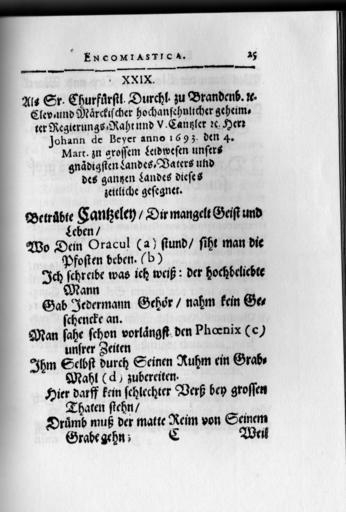 ENCOMIASTICA. 25
XXIX.
Als Sr. Churfürstl. Durchl. zu Brandenb. ꝛc.
Clev- und Märckischer hochansehnlicher geheim-
ter Regierungs-Raht und V. Cantzler ꝛc. Herr
Johann de Beyer anno 1693. den 4.
Mart. zu grossem Leidwesen unsers
gnädigsten Landes-Vaters und
des gantzen Landes dieses
zeitliche gesegnet.
Betrübte Cantzeley / Dir mangelt Geist und
Leben /
Wo Dein Oracul (a) stund / siht man die
Pfosten beben. (b)
Ich schreibe was ich weiß: der hochbeliebte
Mann
Gab Jedermann Gehör / nahm kein Ge-
schencke an.
Man sahe schon vorlängst den Phœnix (c)
unsrer Zeiten
Ihm Selbst durch Seinen Ruhm ein Grab-
Mahl (d) zubereiten.
Hier darff kein schlechter Verß bey grossen
Thaten stehn /
Drümb muß der matte Reim von Seinem
Grabe gehn; C Weil